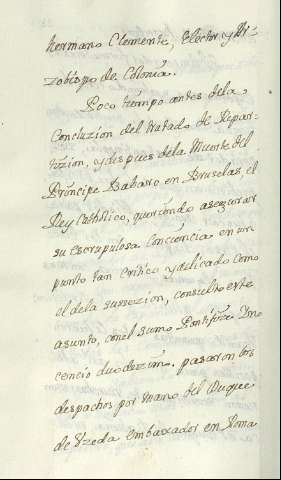 hermano Clemente, Elector y Ar-
zobispo de Colonia.
Poco tiempo antes dela
Concluzion del tratado de Repar-
tizion, y despues dela Muerte del
Prinzipe Babaro en Bruselas, el
Rey Catholico, queriendo asegurar
su escrupulosa Conciencia en un
punto tan critico y delicado como
el dela sussezion, consulto este
asunto, con el sumo Pontifize Yno
cencio duodezimo. pasaron los
despachos por mano del Duque
de Vzeda embaxador en Roma